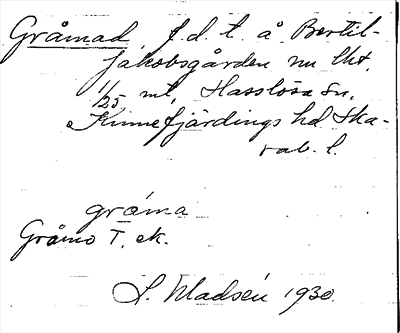 Gråmad f.d. t. å Bertil-
jakobsgården nu lht,
1/25 mtl, Hasslösa sn.
Kinnefjärdings hd. Ska-
rab. l.
gråma
Gråmo T. ek.
S. Madsén 1930.